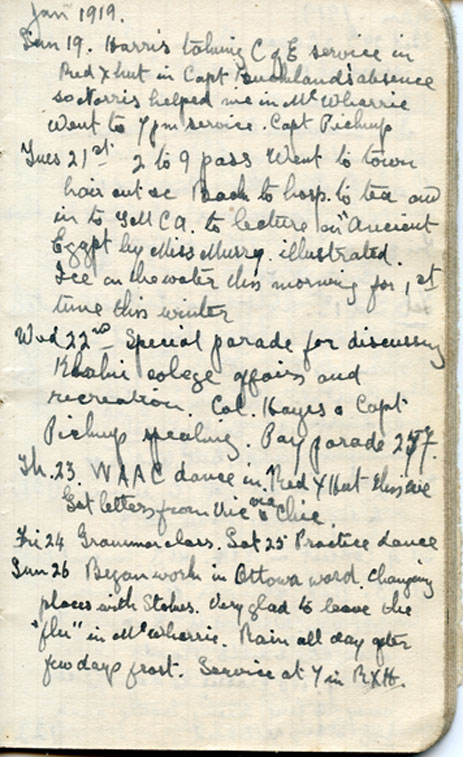 Jan 1919.
Sun 19. Harris taking C of E service in
Red X hut in Capt Bucklands absence
so Norris helped me in McWharrie
Went to 7 pm service. Capt Pickup
Tues 21st 2 to 9 pass Went to town
hair cut &c Back to hosp. to tea and
in to YMCA. to lecture on "Ancient
Egypt by Miss Murry. illustrated.
Ice on the water this morning for 1st
time this winter
Wed 22nd Special parade for discussing
Khaki college affairs and
recreation. Col. Hayes & Capt
Pickup speaking. Pay parade
Th. 23. WAAC dance in Red X Hut this eve
Got letters from Vic & Chic.
Fri 24 Grammar class. Sat 25 Practice dance
Sun 26 Began work in Ottawa ward. Changing
places with Stokes. Very glad to leave the
"flu" in McWharrie. Rain all day after
few days frost. Service at 7 in RXH.